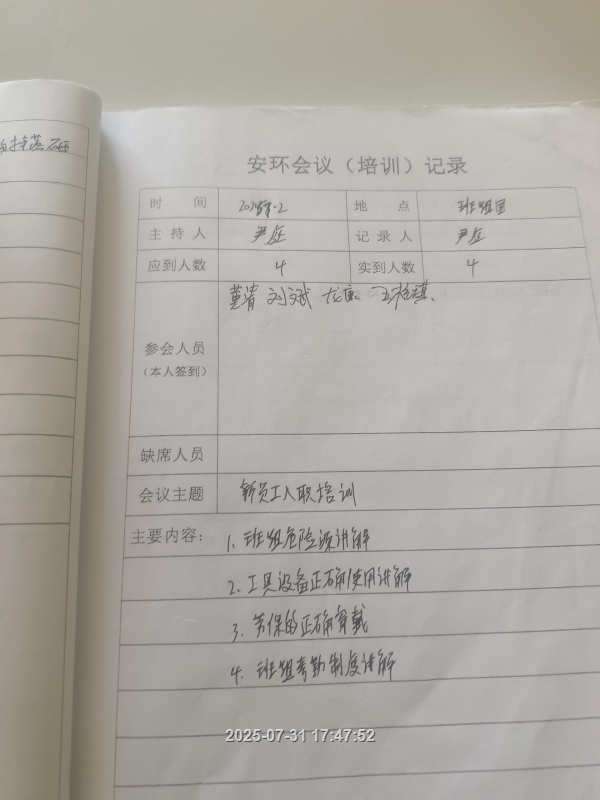 安环会议（培训）记录
时 间 地 点 班组室
主 持 人 尹 记 录 人 尹
应到人数 4 实到人数 4
刘斌 龙
参会人员
（本人签到）
缺席人员
会议主题 新员工入职培训
主要内容： 1. 班组危险源讲解
2. 工具设备正确使用讲解
3. 劳保的正确穿戴
4. 班组考勤制度讲解
2025-07-31 17:47:52